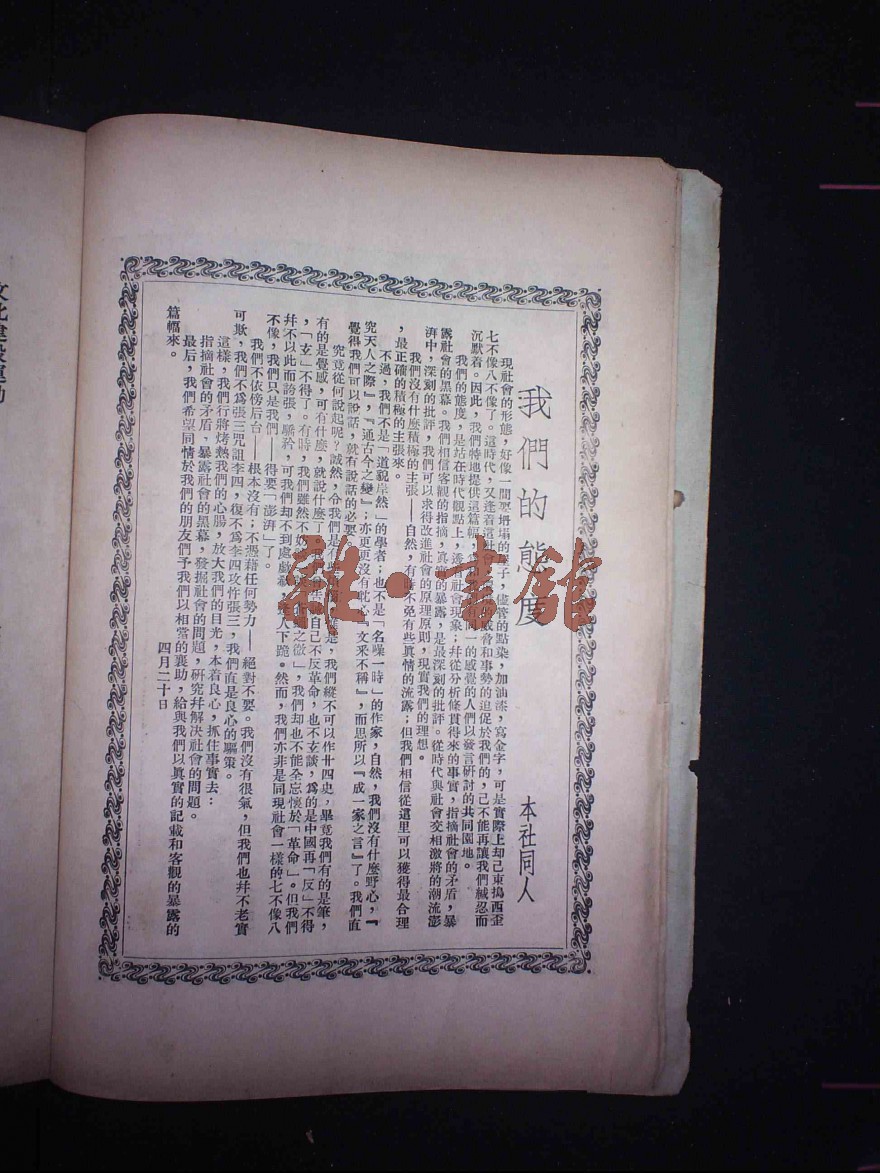 我們的態度
本社同人
現社會的形態，好像一間要坍塌的屋子，儘管的點染，加油漆，寫金字，可是實際上却已東塌西歪
七不像八不像了。這時代，又逢着這社會，威脅和事勢的迫促於我們的，已不能再讓我們緘忍而
沉默着。因此，我們特地提供這篇幅，一的感覺的人們以發言研討的共同園地。
我們的態度，是站在時代觀點上，透看社會現象；幷從分析條貫得來的事實，指摘社會的矛盾，暴
露社會的黑幕。我們相信客觀的指摘，真實的暴露，是最深刻的批評。從時代與社會交相激將的潮流澎
湃中，深刻的批評，我們可以求得改進社會的原理原則，現實我們的理想。
我們沒有什麼積極的主張——自然，有時不免有些眞情的流露；但我們相信從這里可以獲得最合理
，最正確的積極的主張來。
不過，我們不是「道貌岸然」的學者；也不是「名噪一時」的作家，自然，我們沒有什麼野心，『
究天人之際』，『通古今之變』；亦更更沒有忱心『文釆不稱』，而思所以『成一家之言』了。我們直
覺得我們可以說話，就有說話的必要
究竟從何說起呢？誠然，令我們是有，我們縱不可以作廿四史，畢竟我們有的是筆，
有的是覺感，可有什麼，就說什麼了，自己不反革命，也不玄談，爲的是中國再「反」不得
，「玄」不得了。有時，我們雖然不妨之徵」，我們却也不能全忘懷於「革命」。但我們
幷不以此而誇張，驕矜，可我們却不到處戲人下跪。然而，我們亦非是同現社會一樣的七不像八
不像，我們只是我們——得要「澎湃」了。
我們不依傍后台——根本沒有；不憑藉任何勢力——絕對不要。我們沒有很氣，但我們也幷不老實
可欺，我們不爲張三咒詛李四，復不爲李四攻忤張三，我們直是良心的驅策。
這樣，我們行將烤熱我們的心腸，放大我們的目光，本着良心，抓住事實去：
指摘社會的矛盾，暴露社會的黑幕，發掘社會的問題，研究幷解決社會的問題。
最后，我們希望同情於我們的朋友們予我們以相當的襄助，給與我們以眞實的記載和客觀的暴露的
篇幅來。
四月二十日
文化建設運動
雜·書館